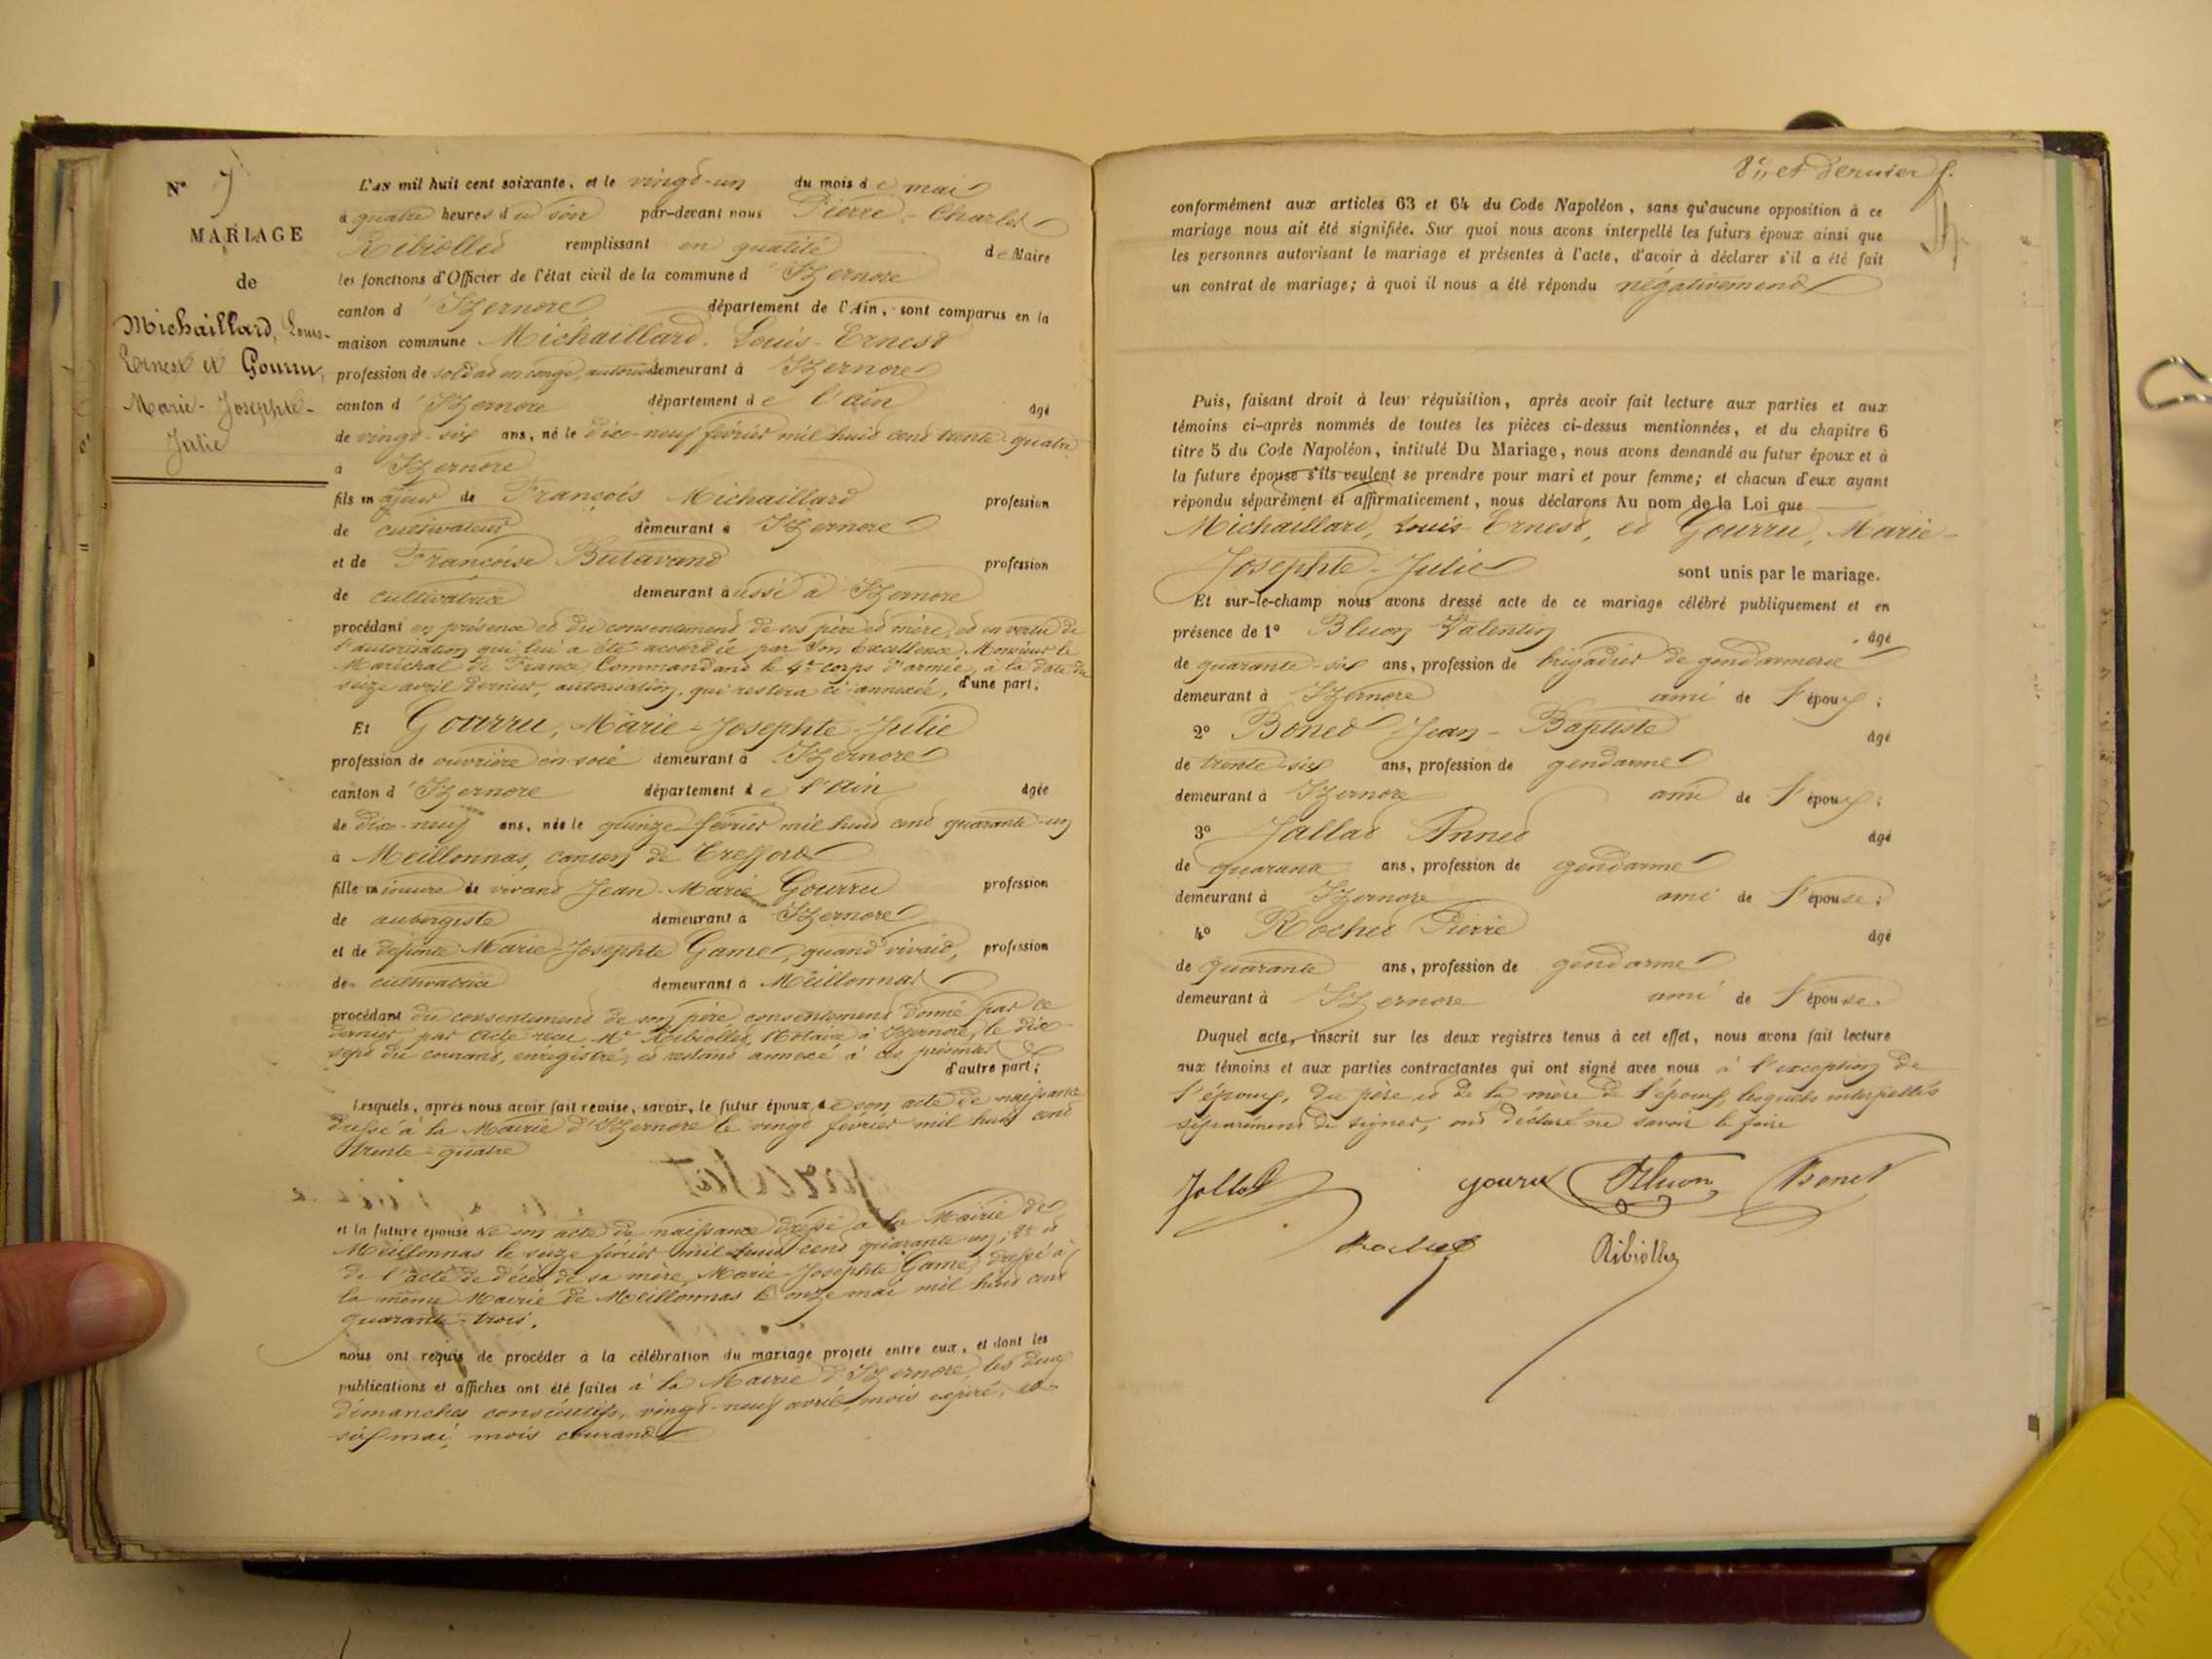 N° 7
MARIAGE
de
Michaillard, Louis-
Ernest et Gourru,
Marie-Josephte-
Julie
L'AN mil huit cent soixante, et le vingt-un du mois de mai
à quatre heures du soir par-devant nous Pierre-Charles
Ribiollet remplissant en qualité de Maire
les fonctions d'Officier de l'état civil de la commune d'Izernore
canton d'Izernore département de l'Ain, sont comparus en la
maison commune Michaillard, Louis-Ernest
profession de soldat en congé, autorisé demeurant à Izernore
canton d'Izernore département de l'ain âgé
de vingt-six ans, né le dix-neuf février mil huit cent trente-quatre
à Izernore
fils majeur de François Michaillard profession
de cultivateur demeurant à Izernore
et de Françoise Butavand profession
de cultivatrice demeurant aussi à Izernore
procédant en présence et du consentement de ses père et mère, et en vertu de
l'autorisation qui lui a été accordée par Son Excellence Monsieur le
Maréchal de France Commandant le 4e corps d'armée, à la date du
seize avril dernier, autorisation, qui restera ci-annexée, d'une part;
Et Gourru, Marie-Josephte-Julie
profession de ouvrière en soie demeurant à Izernore
canton d'Izernore département de l'Ain âgée
de dix-neuf ans, née le quinze février mil huit cent quarante-un
à Meillonnas, canton de Treffort
fille mineure de vivant Jean-Marie Gourru profession
de aubergiste demeurant à Izernore
et de défunte Marie-Josephte Game, quand vivait, profession
de cultivatrice demeurant à Meillonnas
procédant du consentement de son père consentement donné par ce
dernier, par acte reçu Me Ribiollet, Notaire à Izernore, le dix-
sept du courant, enregistré, et restant annexé à ces présentes
d'autre part;
Lesquels, après nous avoir fait remise, savoir, le futur époux, de son acte de naissance
dressé à la Mairie d'Izernore le vingt février mil huit cent
trente-quatre
et la future épouse de son acte de naissance dressé à la Mairie de
Meillonnas le seize février mil huit cent quarante-un; 2° et
de l'acte de décès de sa mère, Marie-Josephte Game, dressé à
la même Mairie de Meillonnas le onze mai mil huit cent
quarante-trois.
nous ont requis de procéder à la célébration du mariage projeté entre eux, et dont les
publications et affiches ont été faites à la Mairie d'Izernore, les deux
dimanches consécutifs, vingt-neuf avril, mois expiré, et
six mai, mois courant
8e et dernier f.
conformément aux articles 63 et 64 du Code Napoléon, sans qu'aucune opposition à ce
mariage nous ait été signifiée. Sur quoi nous avons interpellé les futurs époux ainsi que
les personnes autorisant le mariage et présentes à l'acte, d'avoir à déclarer s'il a été fait
un contrat de mariage; à quoi il nous a été répondu négativement
Puis, faisant droit à leur réquisition, après avoir fait lecture aux parties et aux
témoins ci-après nommés de toutes les pièces ci-dessus mentionnées, et du chapitre 6
titre 5 du Code Napoléon, intitulé Du Mariage, nous avons demandé au futur époux et à
la future épouse s'ils veulent se prendre pour mari et pour femme; et chacun d'eux ayant
répondu séparément et affirmativement, nous déclarons Au nom de la Loi que
Michaillard, Louis-Ernest, et Gourru, Marie-
Josephte-Julie sont unis par le mariage.
Et sur-le-champ nous avons dressé acte de ce mariage célébré publiquement et en
présence de 1° Bluon Valentin âgé
de quarante-six ans, profession de brigadier de gendarmerie
demeurant à Izernore ami de l'époux;
2° Bonet Jean-Baptiste âgé
de trente-six ans, profession de gendarme
demeurant à Izernore ami de l'époux;
3° Jallat Annet âgé
de quarante ans, profession de gendarme
demeurant à Izernore ami de l'épouse;
4° Rochet Pierre âgé
de quarante ans, profession de gendarme
demeurant à Izernore ami de l'épouse.
Duquel acte, inscrit sur les deux registres tenus à cet effet, nous avons fait lecture
aux témoins et aux parties contractantes qui ont signé avec nous à l'exception de
l'époux, du père et de la mère de l'époux, lesquels interpellés
séparément de signer, ont déclaré ne savoir le faire
Jallat gouru Bluon Bonet
Rochet Ribiollet